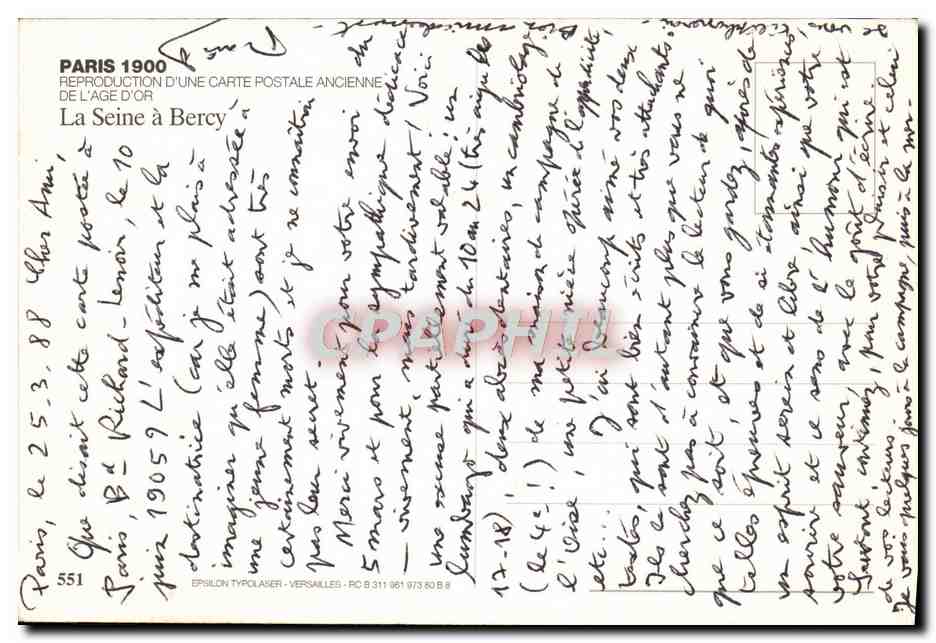 PARIS 1900
REPRODUCTION D'UNE CARTE POSTALE ANCIENNE
DE L'AGE D'OR
La Seine à Bercy
Paris, le 25-3-88 Cher Ami,
Que disait cette carte postée à
Paris, Bd Richard-Lenoir, le 10
juin 1905 ? L'expéditeur et la
destinatrice (car je me plais à
imaginer qu'elle était adressée à
une jeune femme) sont très
certainement morts et je ne
pas leur secret.
Merci vivement pour votre envoi du
5 mars et pour la sympathique dédicace
– vivement, mais tardivement ! Voici
une excuse partiellement valable : un
lumbago qui a duré du 10 au 24 (très aigu les
17-18), deux abcès dentaires, un cambriolage
(le 4e !) de ma maison de campagne de
l'Oise, une petite nièce opérée d'appendicite,
etc...
J'ai beaucoup aimé vos deux
textes, qui sont bien écrits et très attachants.
Ils le sont d'autant plus que vous ne
cherchez pas à convaincre le lecteur de quoi
que ce soit, et que vous gardez, après de
telles épreuves et de si étonnantes expériences,
un esprit serein et libre ainsi que votre
sourire et ce sens de l'humour qui est
votre sauveur, avec le goût d'écrire.
continuez, pour votre plaisir et celui
de vos lecteurs.
Je vais quelques jours à la campagne, puis à la mer.
Je vous
551
EPSILON TYPOLASER - VERSAILLES - RC B 311 961 973 80 B 8
CPAPHIL